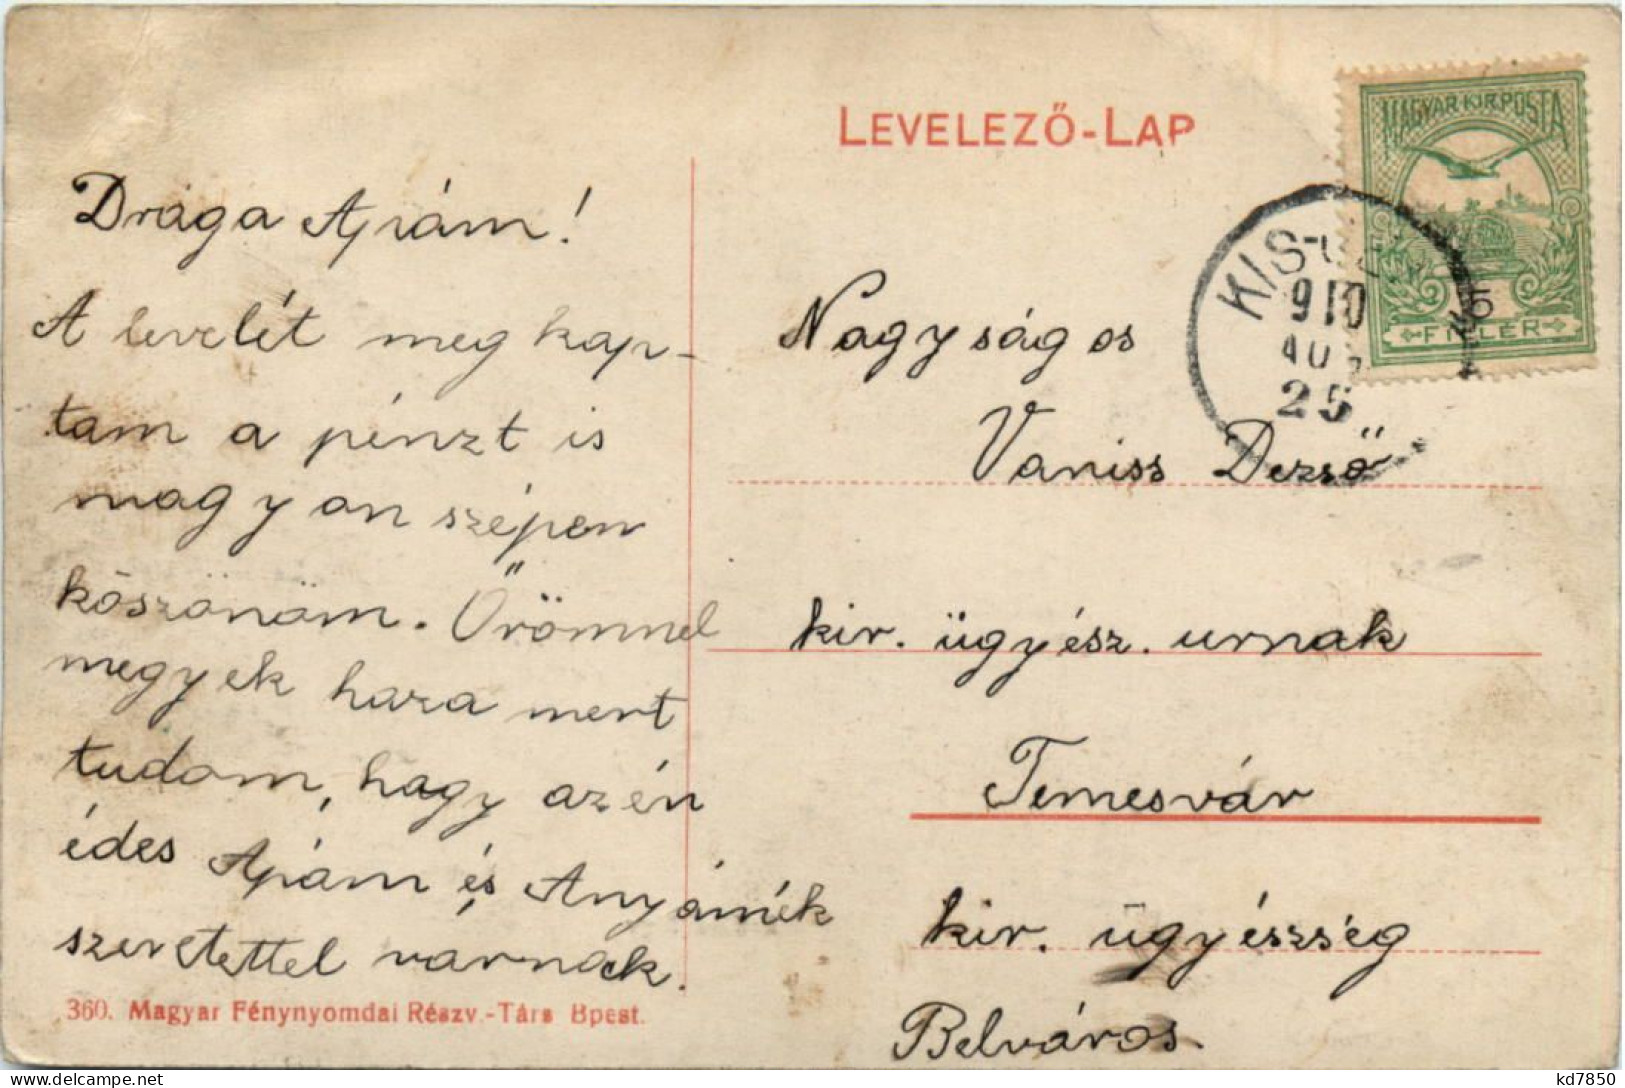 LEVELEZŐ-LAP
MAGYAR KIR. POSTA
5
FILLÉR
910
AUG
25
Drága Apám!
A levelét meg kap-
tam a pénzt is
nagyon szépen
köszönöm. Örömmel
megyek haza mert
tudom, hogy azén
édes Apám és Anyámék
szeretettel várnak.
Nagyságos
Vaniss Dezső
kir. ügyész. urnak
Temesvár
kir. ügyészség
Belváros.
360. Magyar Fénynyomdai Részv.-Társ Bpest.
kd7850